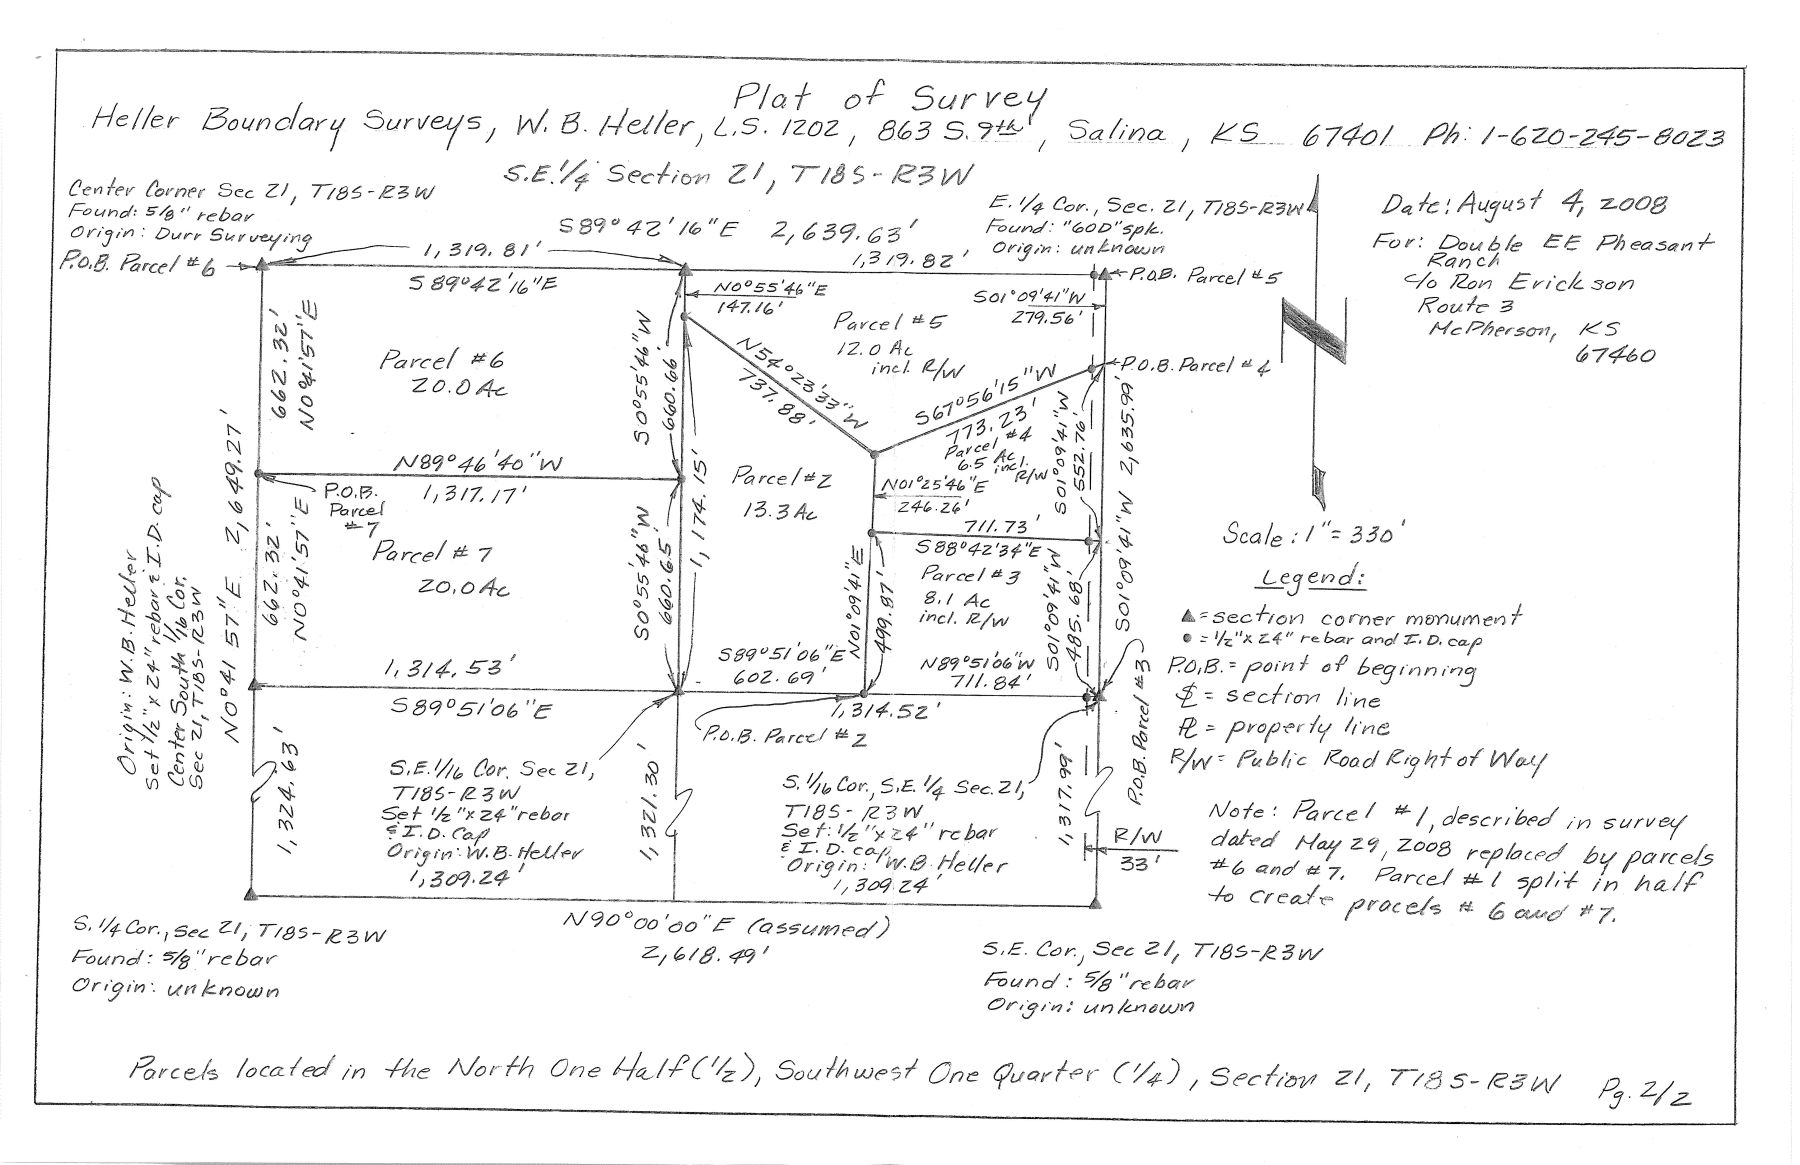 Plat of Survey
Heller Boundary Surveys, W. B. Heller, L.S. 1202, 863 S. 9th, Salina, KS 67401 Ph: 1-620-245-8023
S.E. 1/4 Section 21, T18S-R3W
Center Corner Sec 21, T18S-R3W
Found: 5/8" rebar
Origin: Durr Surveying
P.O.B. Parcel #6
S89°42'16"E 2,639.63'
1,319.81'
1,319.82'
S89°42'16"E
E. 1/4 Cor., Sec. 21, T18S-R3W
Found: "60D" spk.
Origin: unknown
P.O.B. Parcel #5
Date: August 4, 2008
For: Double EE Pheasant
Ranch
c/o Ron Erickson
Route 3
McPherson, KS
67460
N0°55'46"E
147.16'
S01°09'41"W
279.56'
Parcel #5
12.0 Ac
incl. R/W
P.O.B. Parcel #4
662.32'
N0°41'57"E
Parcel #6
20.0 Ac
S0°55'46"W
660.66'
N54°23'33"W
737.88'
S67°56'15"W
773.23'
Parcel #4
6.5 Ac
incl.
R/W
S01°09'41"W
552.76'
S01°09'41"W 2,635.99'
N89°46'40"W
1,317.17'
P.O.B.
Parcel
#7
Parcel #2
13.3 Ac
1,174.15'
N01°25'46"E
246.26'
711.73'
S88°42'34"E
N0°41'57"E 2,649.27'
662.32'
N0°41'57"E
Parcel #7
20.0 Ac
S0°55'46"W
660.65'
N01°09'41"E
499.87'
Parcel #3
8.1 Ac
incl. R/W
S01°09'41"W
485.68'
Origin: W.B. Heller
Set 1/2" x 24" rebar & I.D. cap
Center South 1/16 Cor.
Sec 21, T18S-R3W
1,314.53'
S89°51'06"E
S89°51'06"E
602.69'
N89°51'06"W
711.84'
1,314.52'
P.O.B. Parcel #2
P.O.B. Parcel #3
Scale: 1" = 330'
Legend:
= section corner monument
= 1/2" x 24" rebar and I.D. cap
P.O.B. = point of beginning
= section line
= property line
R/W = Public Road Right of Way
1,324.63'
S.E. 1/16 Cor. Sec 21,
T18S-R3W
Set 1/2" x 24" rebar
& I.D. Cap
Origin: W.B. Heller
1,309.24'
1,321.30'
S. 1/16 Cor., S.E. 1/4 Sec. 21,
T18S-R3W
Set: 1/2" x 24" rebar
& I.D. cap
Origin: W.B. Heller
1,309.24'
1,317.99'
R/W
33'
Note: Parcel #1, described in survey
dated May 29, 2008 replaced by parcels
#6 and #7. Parcel #1 split in half
to create procels # 6 and #7.
N90°00'00"E (assumed)
2,618.49'
S. 1/4 Cor., Sec 21, T18S-R3W
Found: 5/8" rebar
Origin: unknown
S.E. Cor., Sec 21, T18S-R3W
Found: 5/8" rebar
Origin: unknown
Parcels located in the North One Half (1/2), Southwest One Quarter (1/4), Section 21, T18S-R3W
Pg. 2/2